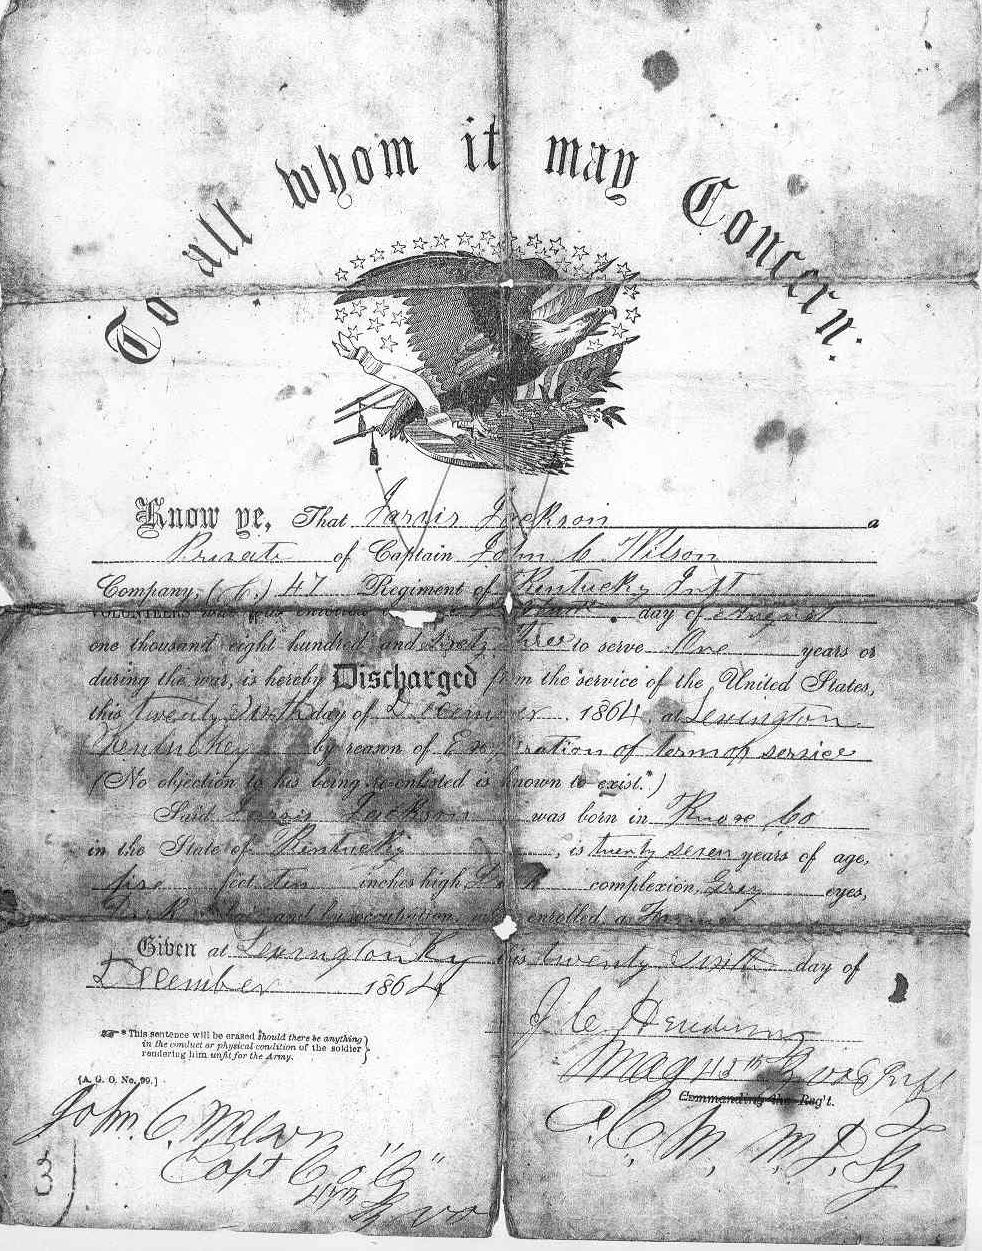 To all whom it may Concern:
Know ye, That Jarvis Jackson a
Private of Captain John C Wilson
Company, (G.) 47 Regiment of Kentucky Inft
VOLUNTEERS day of August
one thousand eight hundred and Sixty three to serve One years or
during the war, is hereby Discharged from the service of the United States,
this Twenty Sixth day of December 1864, at Lexington
Kentucky by reason of Expiration of term of service
(No objection to his being re-enlisted is known to exist.*)
Said Jarvis Jackson was born in Knox Co
in the State of Kentucky, is twenty seven years of age,
five feet ten inches high Dark complexion, Grey eyes,
and by occupation, when enrolled, a Farmer
Given at Lexington Ky this twenty Sixth day of
December 1864
J C Henderson
* This sentence will be erased should there be anything
in the conduct or physical condition of the soldier
rendering him unfit for the Army.
[A. G. O. No. 99.]
Commanding the Reg't.
John C. Wilson
Capt Co "G"
47th Ky
A. C. M. M. D. Ky
3